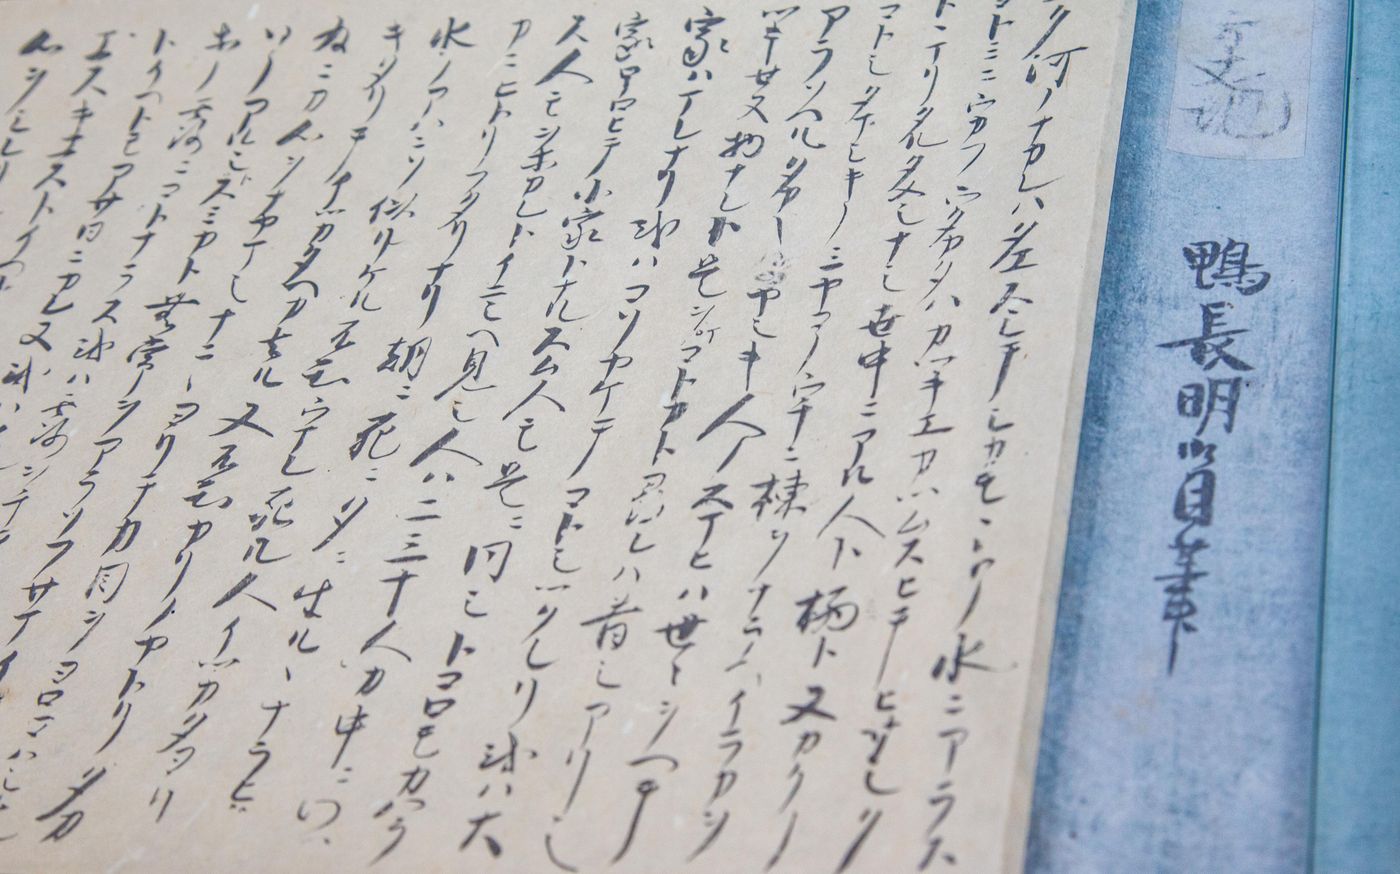 方丈記
鴨長明自筆
ク河ノナカレハ絶スシテシカモヽトノ水ニアラス
ヨトミニウカフウタカタハカツキエカツムスヒテヒサシク
トヽマリタルタメシナシ世中ニアル人ト栖ト又カクノ
コトシタマシキノミヤコノウチニ棟ヲナラヘイラカヲ
アラソヘルタカキイヤシキ人ノスマヒハ世々ヲヘテ
ツキセヌ物ナレト是ヲマコトカト尋レハ昔シアリシ
家ハマレナリ或ハコソヤケテコトシツクレリ或ハ大
家ホロヒテ小家トナルスム人モ是ニ同シトコロモカハラ
ス人モヲホカレトイニシヘ見シ人ハ二三十人カ中ニワツ
カニヒトリフタリナリ朝ニ死ニ夕ニ生ルヽナラヒ
水ノアハニソ似リケル不知ウマレ死ル人イツカタヨリ
キタリテイツカタヘカ去ル又不知カリノヤトリタカ
為ニカ心ヲナヤマシナニヽヨリテカ目ヲヨロコハシ
ソノアルシトスミカト無常ヲアラソフサマイ
ホノ露ニコトナラス或ハ露ヲチテ
トイヘトモアサ日ニカレヌ或ハ
エスキエストイヘ